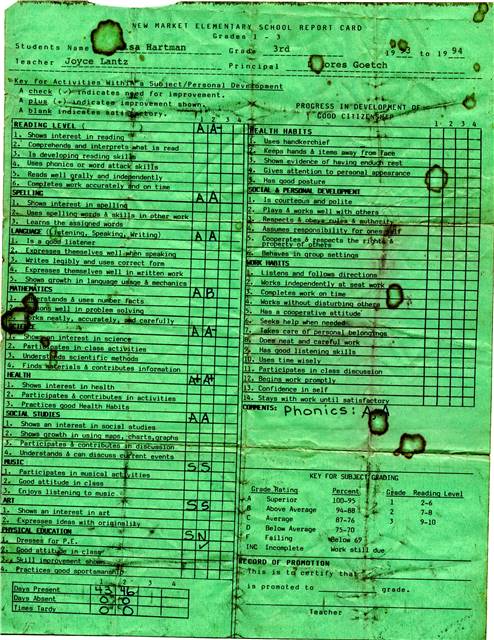 NEW MARKET ELEMENTARY SCHOOL REPORT CARD
Grades 1 - 3
Students Name sa Hartman Grade 3rd 19 3 to 1994
Teacher Joyce Lantz Principal ores Goetch
Key for Activities Within a Subject/Personal Development
A check (✓) indicates need for improvement.
A plus (+) indicates improvement shown.
A blank indicates satisfactory.
1 2 3 4
READING LEVEL ( A A-
1. Shows interest in reading
2. Comprehends and interprets what is read
3. Is developing reading skills
4. Uses phonics or word attack skills
5. Reads well orally and independently
6. Completes work accurately and on time
SPELLING A A
1. Shows interest in spelling
2. Uses spelling words & skills in other work
3. Learns the assigned words
LANGUAGE (Listening, Speaking, Writing) A A
1. Is a good listener
2. Expresses themselves well when speaking
3. Writes legibly and uses correct form
4. Expresses themselves well in written work
5. Shows growth in language usage & mechanics
MATHEMATICS A B
1. Understands & uses number facts
Reasons well in problem solving
Works neatly, accurately, and carefully
SCIENCE A A-
1. Shows an interest in science
2. Participates in class activities
3. Understands scientific methods
4. Finds materials & contributes information
HEALTH A+ A+
1. Shows interest in health
2. Participates & contributes in activities
3. Practices good Health Habits
SOCIAL STUDIES A A
1. Shows an interest in social studies
2. Shows growth in using maps, charts, graphs
3. Participates & contributes in discussion
4. Understands & can discuss current events
MUSIC S S
1. Participates in musical activities
2. Good attitude in class
3. Enjoys listening to music.
ART S S
1. Shows an interest in art
2. Expresses ideas with originality
PHYSICAL EDUCATION S N
1. Dresses for P.E. ✓
2. Good attitude in class
3. Skill improvement shown
4. Practices good sportsmanship
1 2 3 4
Days Present 43 46
Days Absent 0 0
Times Tardy 0 0
PROGRESS IN DEVELOPMENT OF
GOOD CITIZENSHIP
1 2 3 4
HEALTH HABITS
1. Uses handkerchief
2. Keeps hands & items away from face
3. Shows evidence of having enough rest
4. Gives attention to personal appearance
5. Has good posture
SOCIAL & PERSONAL DEVELOPMENT
1. Is courteous and polite
2. Plays & works well with others
3. Respects & obeys rules & authority
4. Assumes responsibility for oneself
5. Cooperates & respects the rights &
property of others
6. Behaves in group settings
WORK HABITS
1. Listens and follows directions
2. Works independently at seat work
3. Completes work on time
4. Works without disturbing others
5. Has a cooperative attitude
6. Seeks help when needed
7. Takes care of personal belongings
8. Does neat and careful work
9. Has good listening skills
10. Uses time wisely
11. Participates in class discussion
12. Begins work promptly
13. Confidence in self
14. Stays with work until satisfactory
COMMENTS: Phonics: A A
KEY FOR SUBJECT GRADING
Grade Rating Percent Grade Reading Level
A Superior 100-95 1 2-6
B Above Average 94-88 2 7-8
C Average 87-76 3 9-10
D Below Average 75-70
F Failing Below 69
INC Incomplete Work still due
RECORD OF PROMOTION
This is to certify that
is promoted to grade.
Teacher